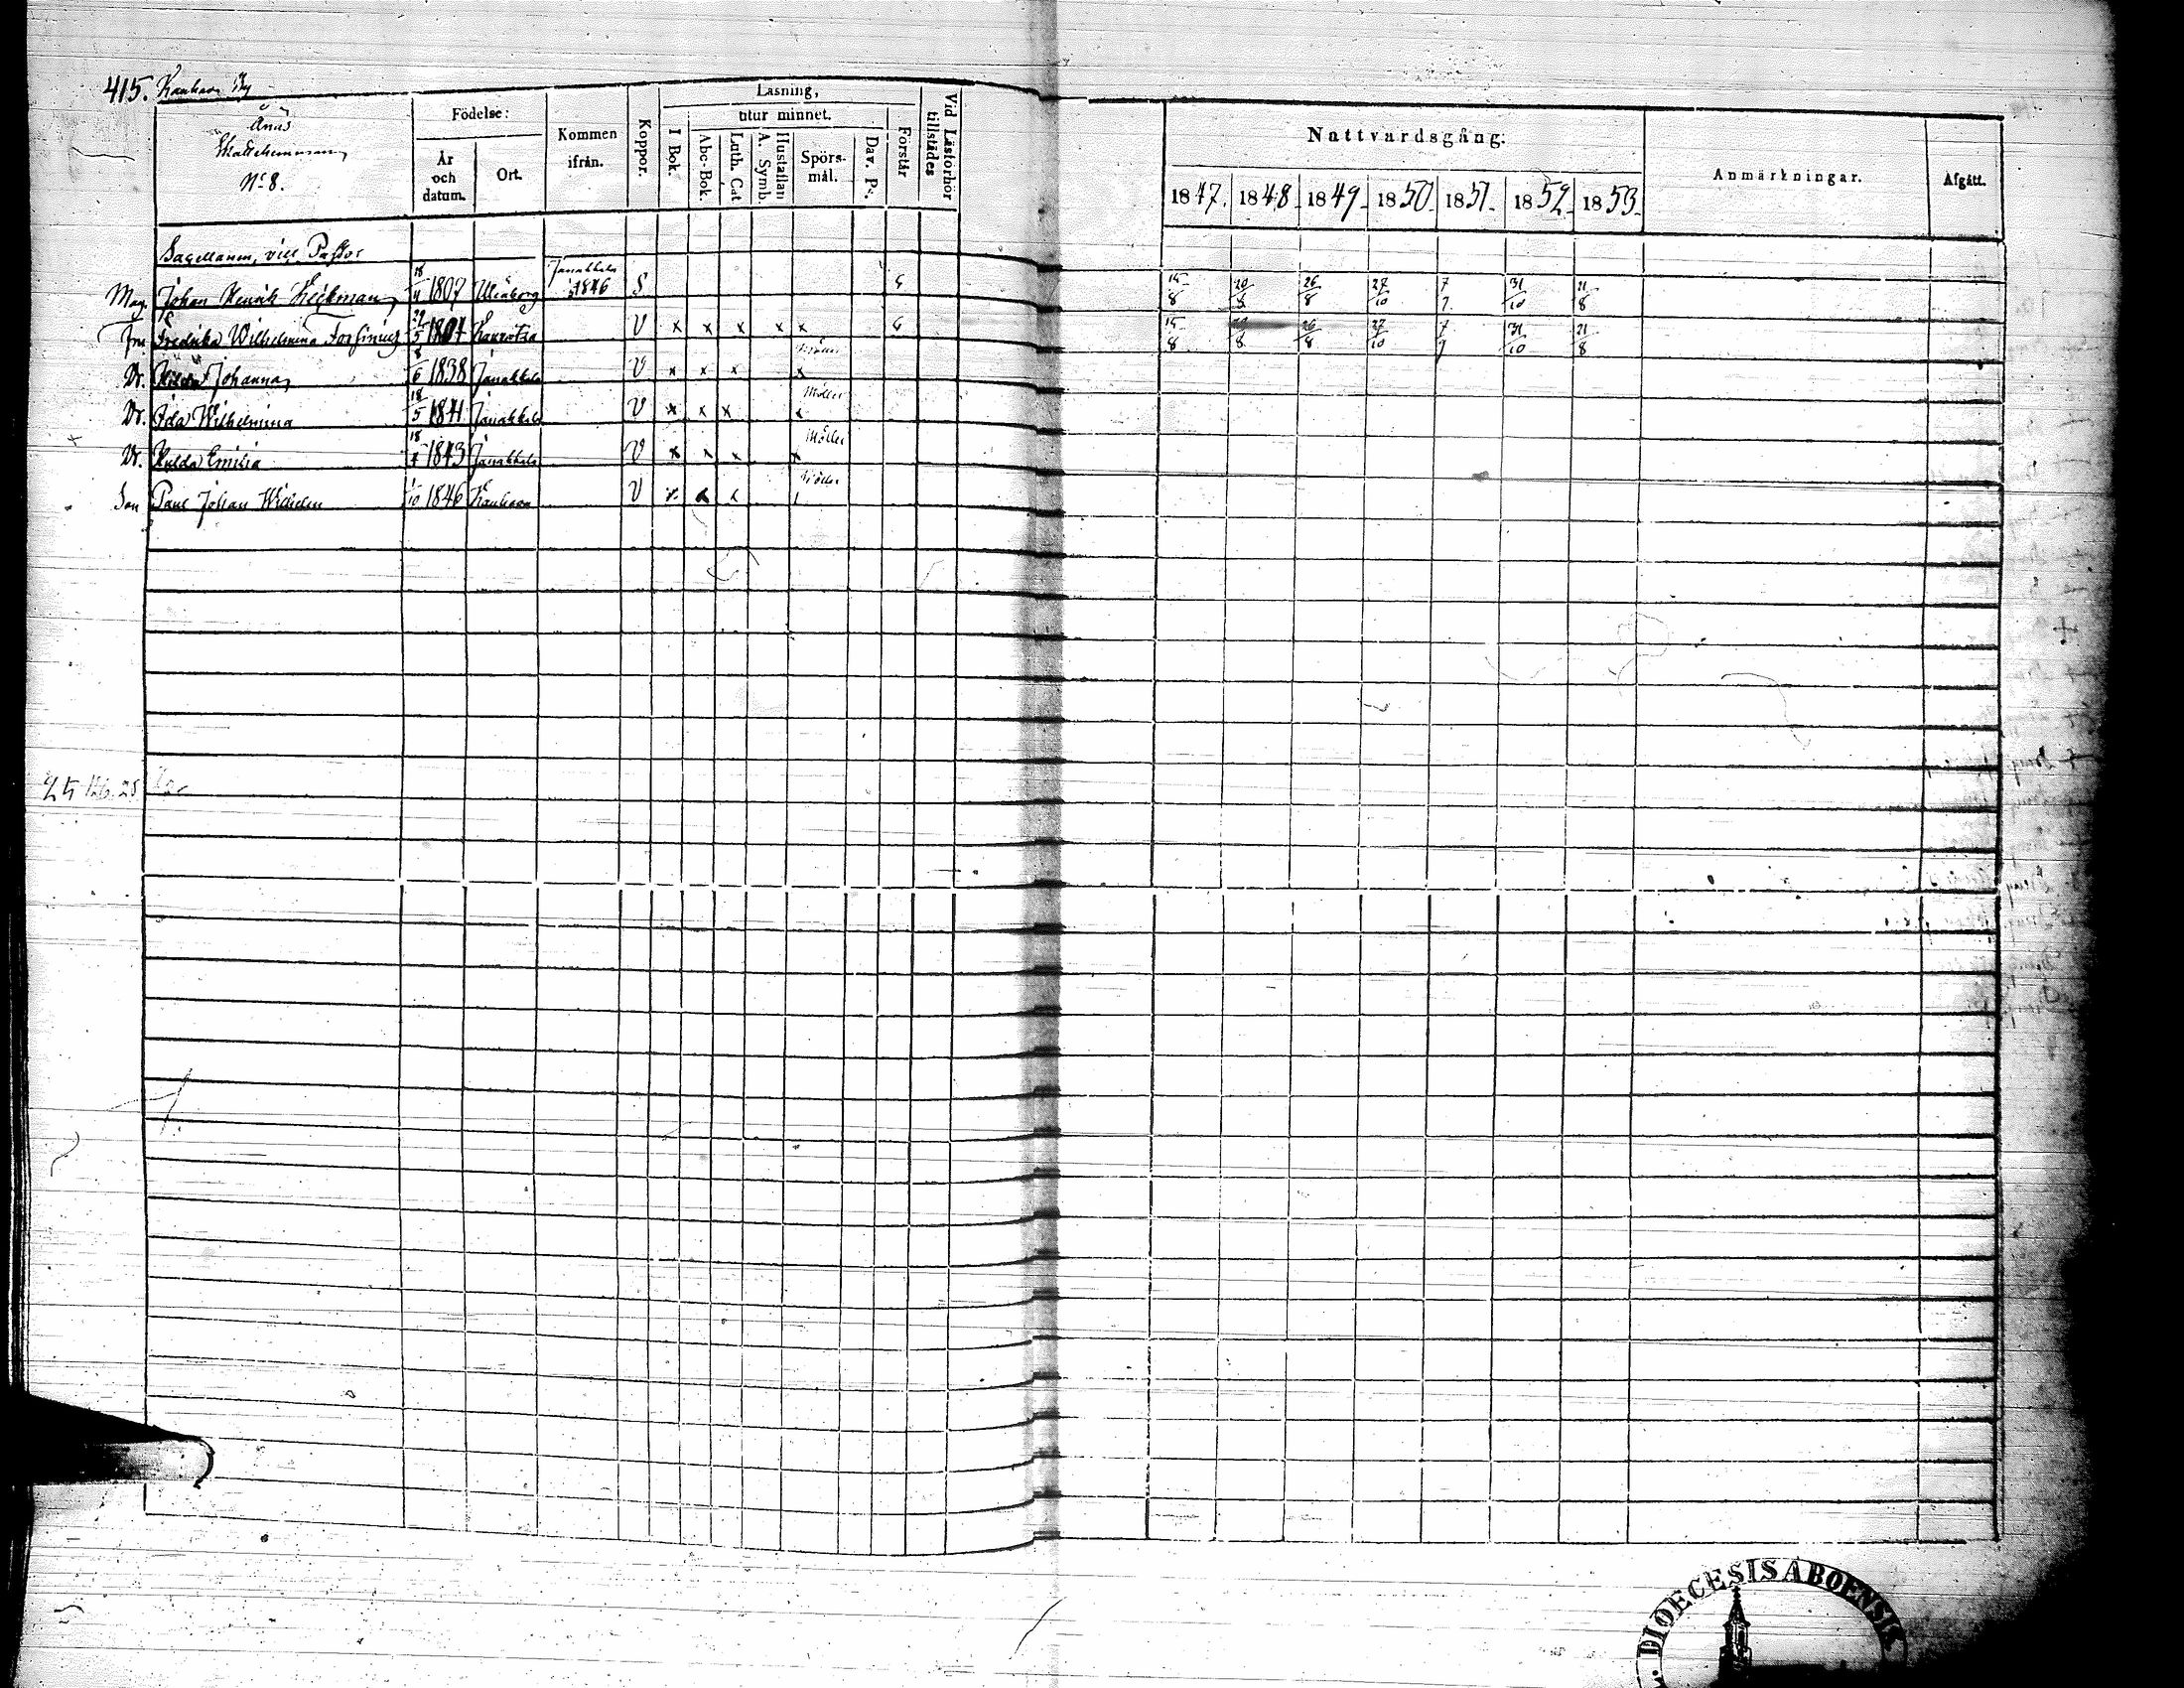 415. Kauhava By
Anüs
Skattehemman
No 8.
Födelse:
År och datum.
Ort.
Kommen ifrån.
Koppor.
Läsning,
utur minnet.
I Bok.
Abc-Bok.
Luth. Cat
A. Symb.
Hustaflan
Spörs-mål.
Dav. Ps.
Förstår
Vid Läsförhör tillstädes
Nattvardsgång.
1847. 1848. 1849. 1850. 1851. 1852. 1853.
Anmärkningar.
Afgått.
Sacellanen, vice Pastor
Mag. Johan Henrik Heikman 18/4 1807 Uleåborg Janakkala 1846 S 15/8 20/8 26/8 27/10 7/7 31/10 21/8
Fru Fredrika Wilhelmina Forssinius 29/5 V x x x x x 15/8 26/8 27/10 31/10 21/8
Dr. Johanna 8/6 1838 Janakkala V x x x x
Dr. Ida Wilhelmina 18/5 1841 Janakkala V x x x Möller x
Dr. Hulda Emilia 18 1843 Janakkala V x x x Möller x
Son Paul Johan Wilhelm 1/10 1846 Kauhava V x x x Möller
DIOECESIS ABOENSIS